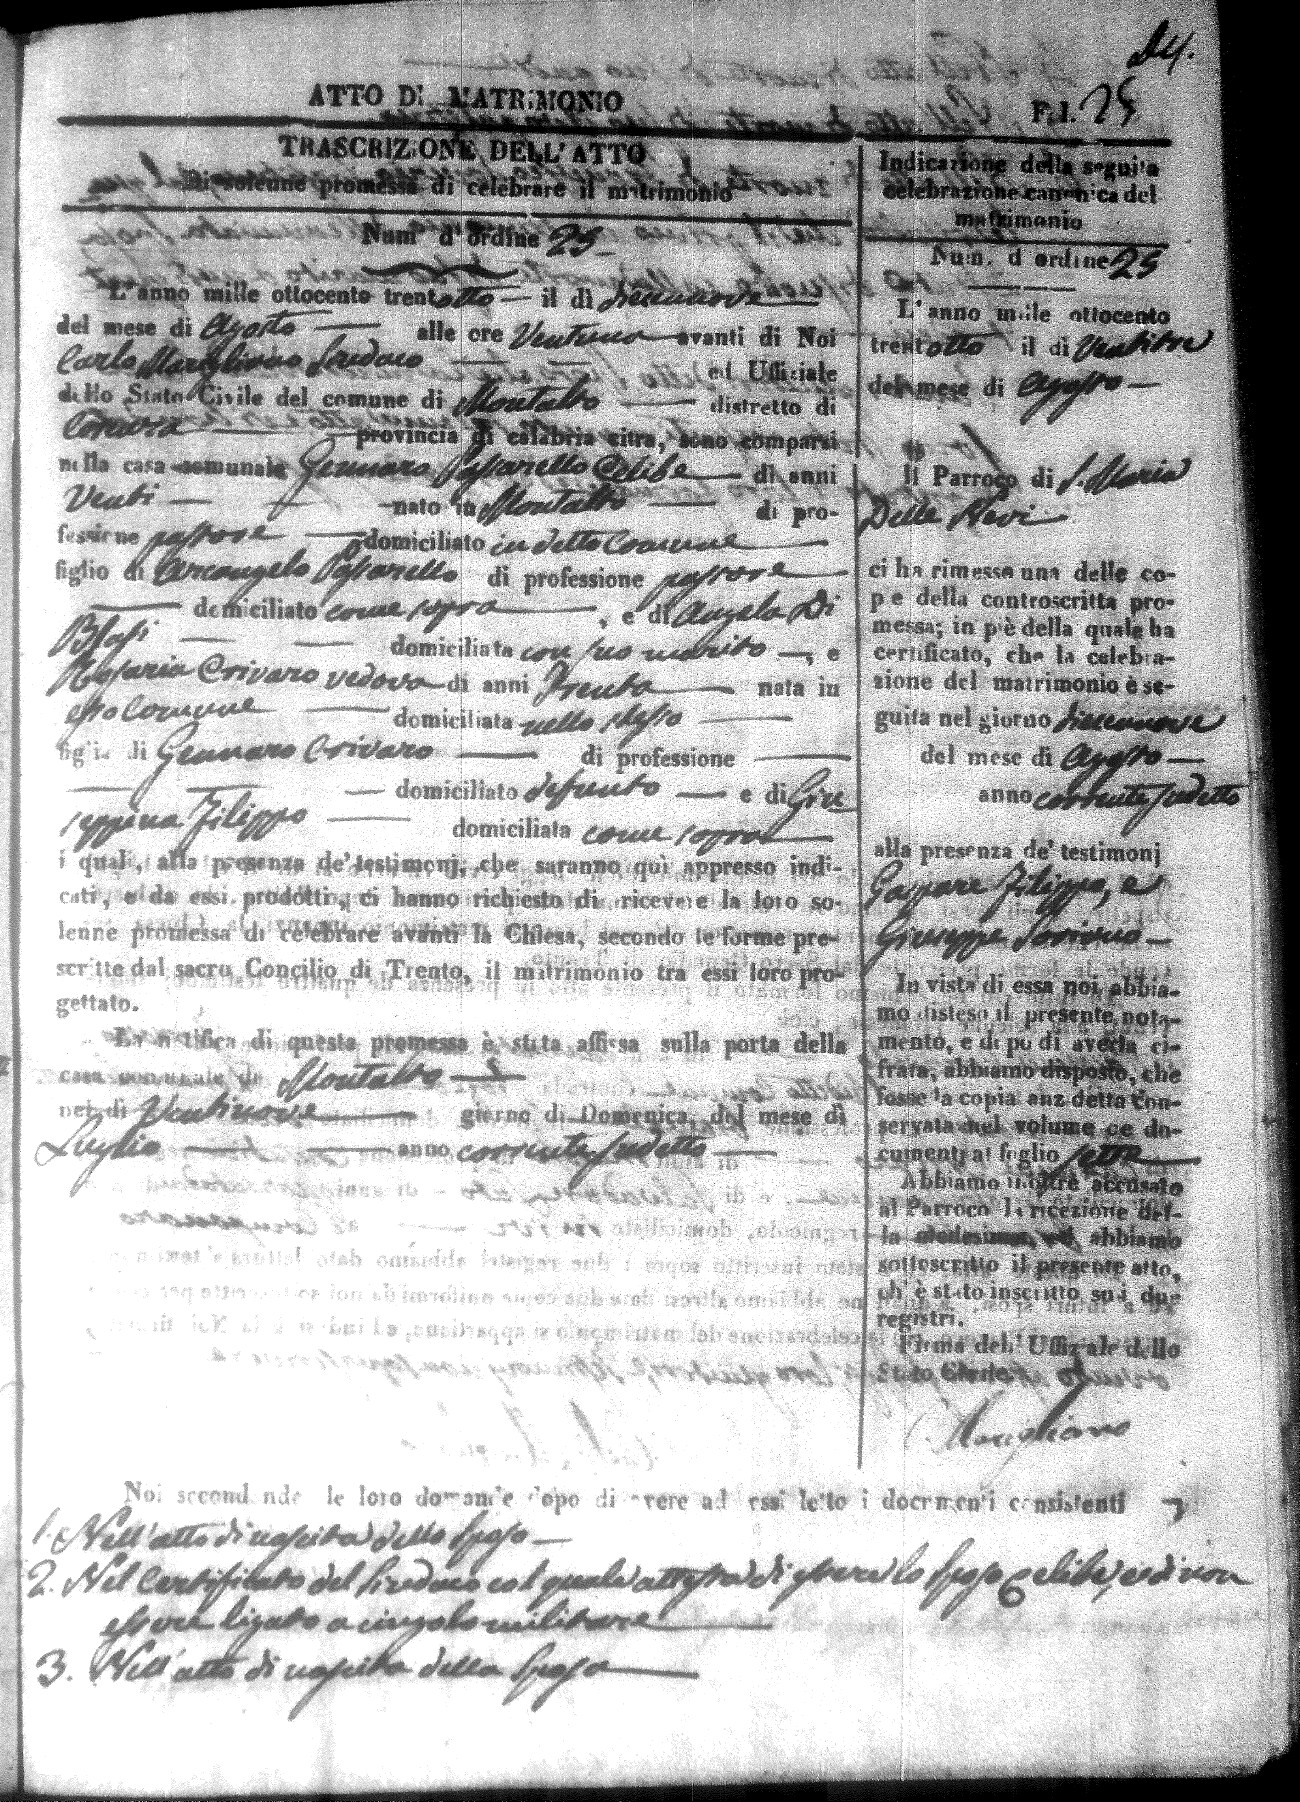 24.
ATTO DI MATRIMONIO
F.l. 25
TRASCRIZIONE DELL'ATTO
Di solenne promessa di celebrare il matrimonio
Num d'ordine 25
L'anno mille ottocento trentotto — il dì diecinnove —
del mese di Agosto — alle ore Ventuno avanti di Noi
Carlo Marigliano Sindaco — ed Uffiziale
dello Stato Civile del comune di Montalto — distretto di
Cosenza — provincia di calabria citra, sono comparsi
nella casa comunale Gennaro Passarello Celibe — di anni
Venti — nato in Montalto — di pro-
fessione pastore — domiciliato in detto Comune —
figlio di Arcangelo Passarello di professione pastore —
— domiciliato come sopra —, e di Angela Di
Blasi — domiciliata con suo marito —, e
Rosaria Crivaro vedova di anni Trenta — nata in
esso Comune — domiciliata nello stesso —
figlia di Gennaro Crivaro — di professione —
— domiciliato defunto — e di Giu
seppina Filippo — domiciliata come sopra —
i quali, alla presenza de' testimonj, che saranno quì appresso indi-
cati, e da essi prodotti, ci hanno richiesto di ricevere la loro so-
lenne promessa di celebrare avanti la Chiesa, secondo le forme pre-
scritte dal sacro Concilio di Trento, il matrimonio tra essi loro pro-
gettato.
La notifica di questa promessa è stata affissa sulla porta della
casa comunale di Montalto —
nel dì Ventinove — giorno di Domenica, del mese di
Luglio — anno corrente sudetto —
Indicazione della seguita
celebrazione canonica del
matrimonio
Num. d ordine 25
L'anno mille ottocento
trentotto il dì Ventitre
del mese di Agosto —
Il Parroco di S. Maria
Delle Nevi
ci ha rimessa una delle co-
pie della controscritta pro-
messa; in piè della quale ha
certificato, che la celebra-
zione del matrimonio è se-
guita nel giorno diecinnove
del mese di Agosto —
anno corrente sudetto
alla presenza de' testimonj
Gaspare Filippo, e
Giuseppe Soriano —
In vista di essa noi abbia-
mo disteso il presente nota-
mento, e di più di averla ci-
frata, abbiamo disposto, che
fosse la copia anzidetta con-
servata nel volume de do-
cumenti al foglio
Abbiamo inoltre accusato
al Parroco la ricezione del-
la medesima, ed abbiamo
sottoscritto il presente atto,
ch' è stato inscritto su i due
registri.
Firma dell' Uffiziale dello
Stato Civile
C. Marigliano
Noi secondando le loro domande dopo di avere ad essi letto i documenti consistenti
1. Nell'atto di nascita dello sposo —
2. Nel Certificato del Sindaco col quale attesta di essere lo sposo Celibe, e di non
essere ligato a cingolo militare —
3. Nell'atto di nascita della sposa —